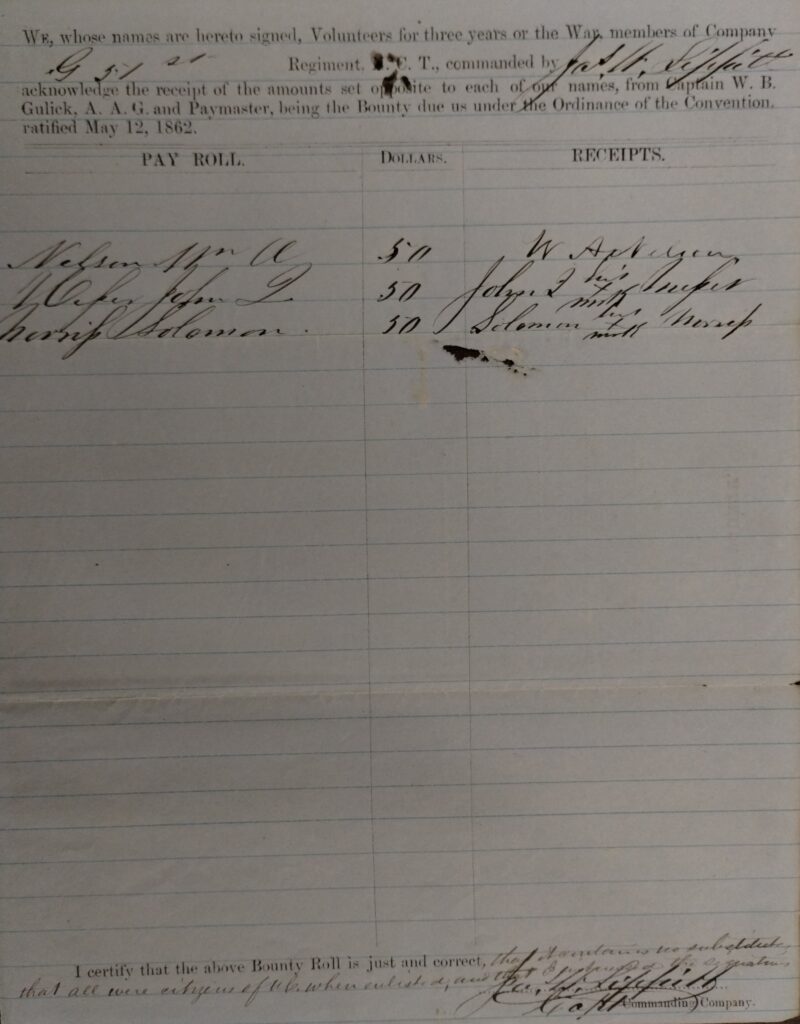 WE, whose names are hereto signed, Volunteers for three years or the War, members of Company
G 51st Regiment, N. C. T., commanded by Jas. W. Lippitt
acknowledge the receipt of the amounts set opposite to each of our names, from Captain W. B.
Gulick, A. A. G. and Paymaster, being the Bounty due us under the Ordinance of the Convention,
ratified May 12, 1862.
PAY ROLL. DOLLARS. RECEIPTS.
Nelson Wm A 50 W A Nelson
John Q 50 John Q his mark
Norris Solomon. 50 Solomon his mark Norris
I certify that the above Bounty Roll is just and correct, that it contains no substitutes
that all were citizens of N.C. when enlisted, and that I the signatures
Jas. W. Lippitt
Capt Commanding Company.